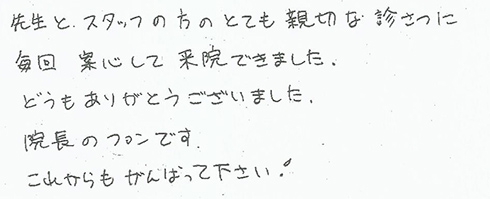 先生と、スタッフの方のとても親切な診さつに
毎回 案心して来院できました。
どうもありがとうございました。
院長のファンです。
これからもがんばって下さい!